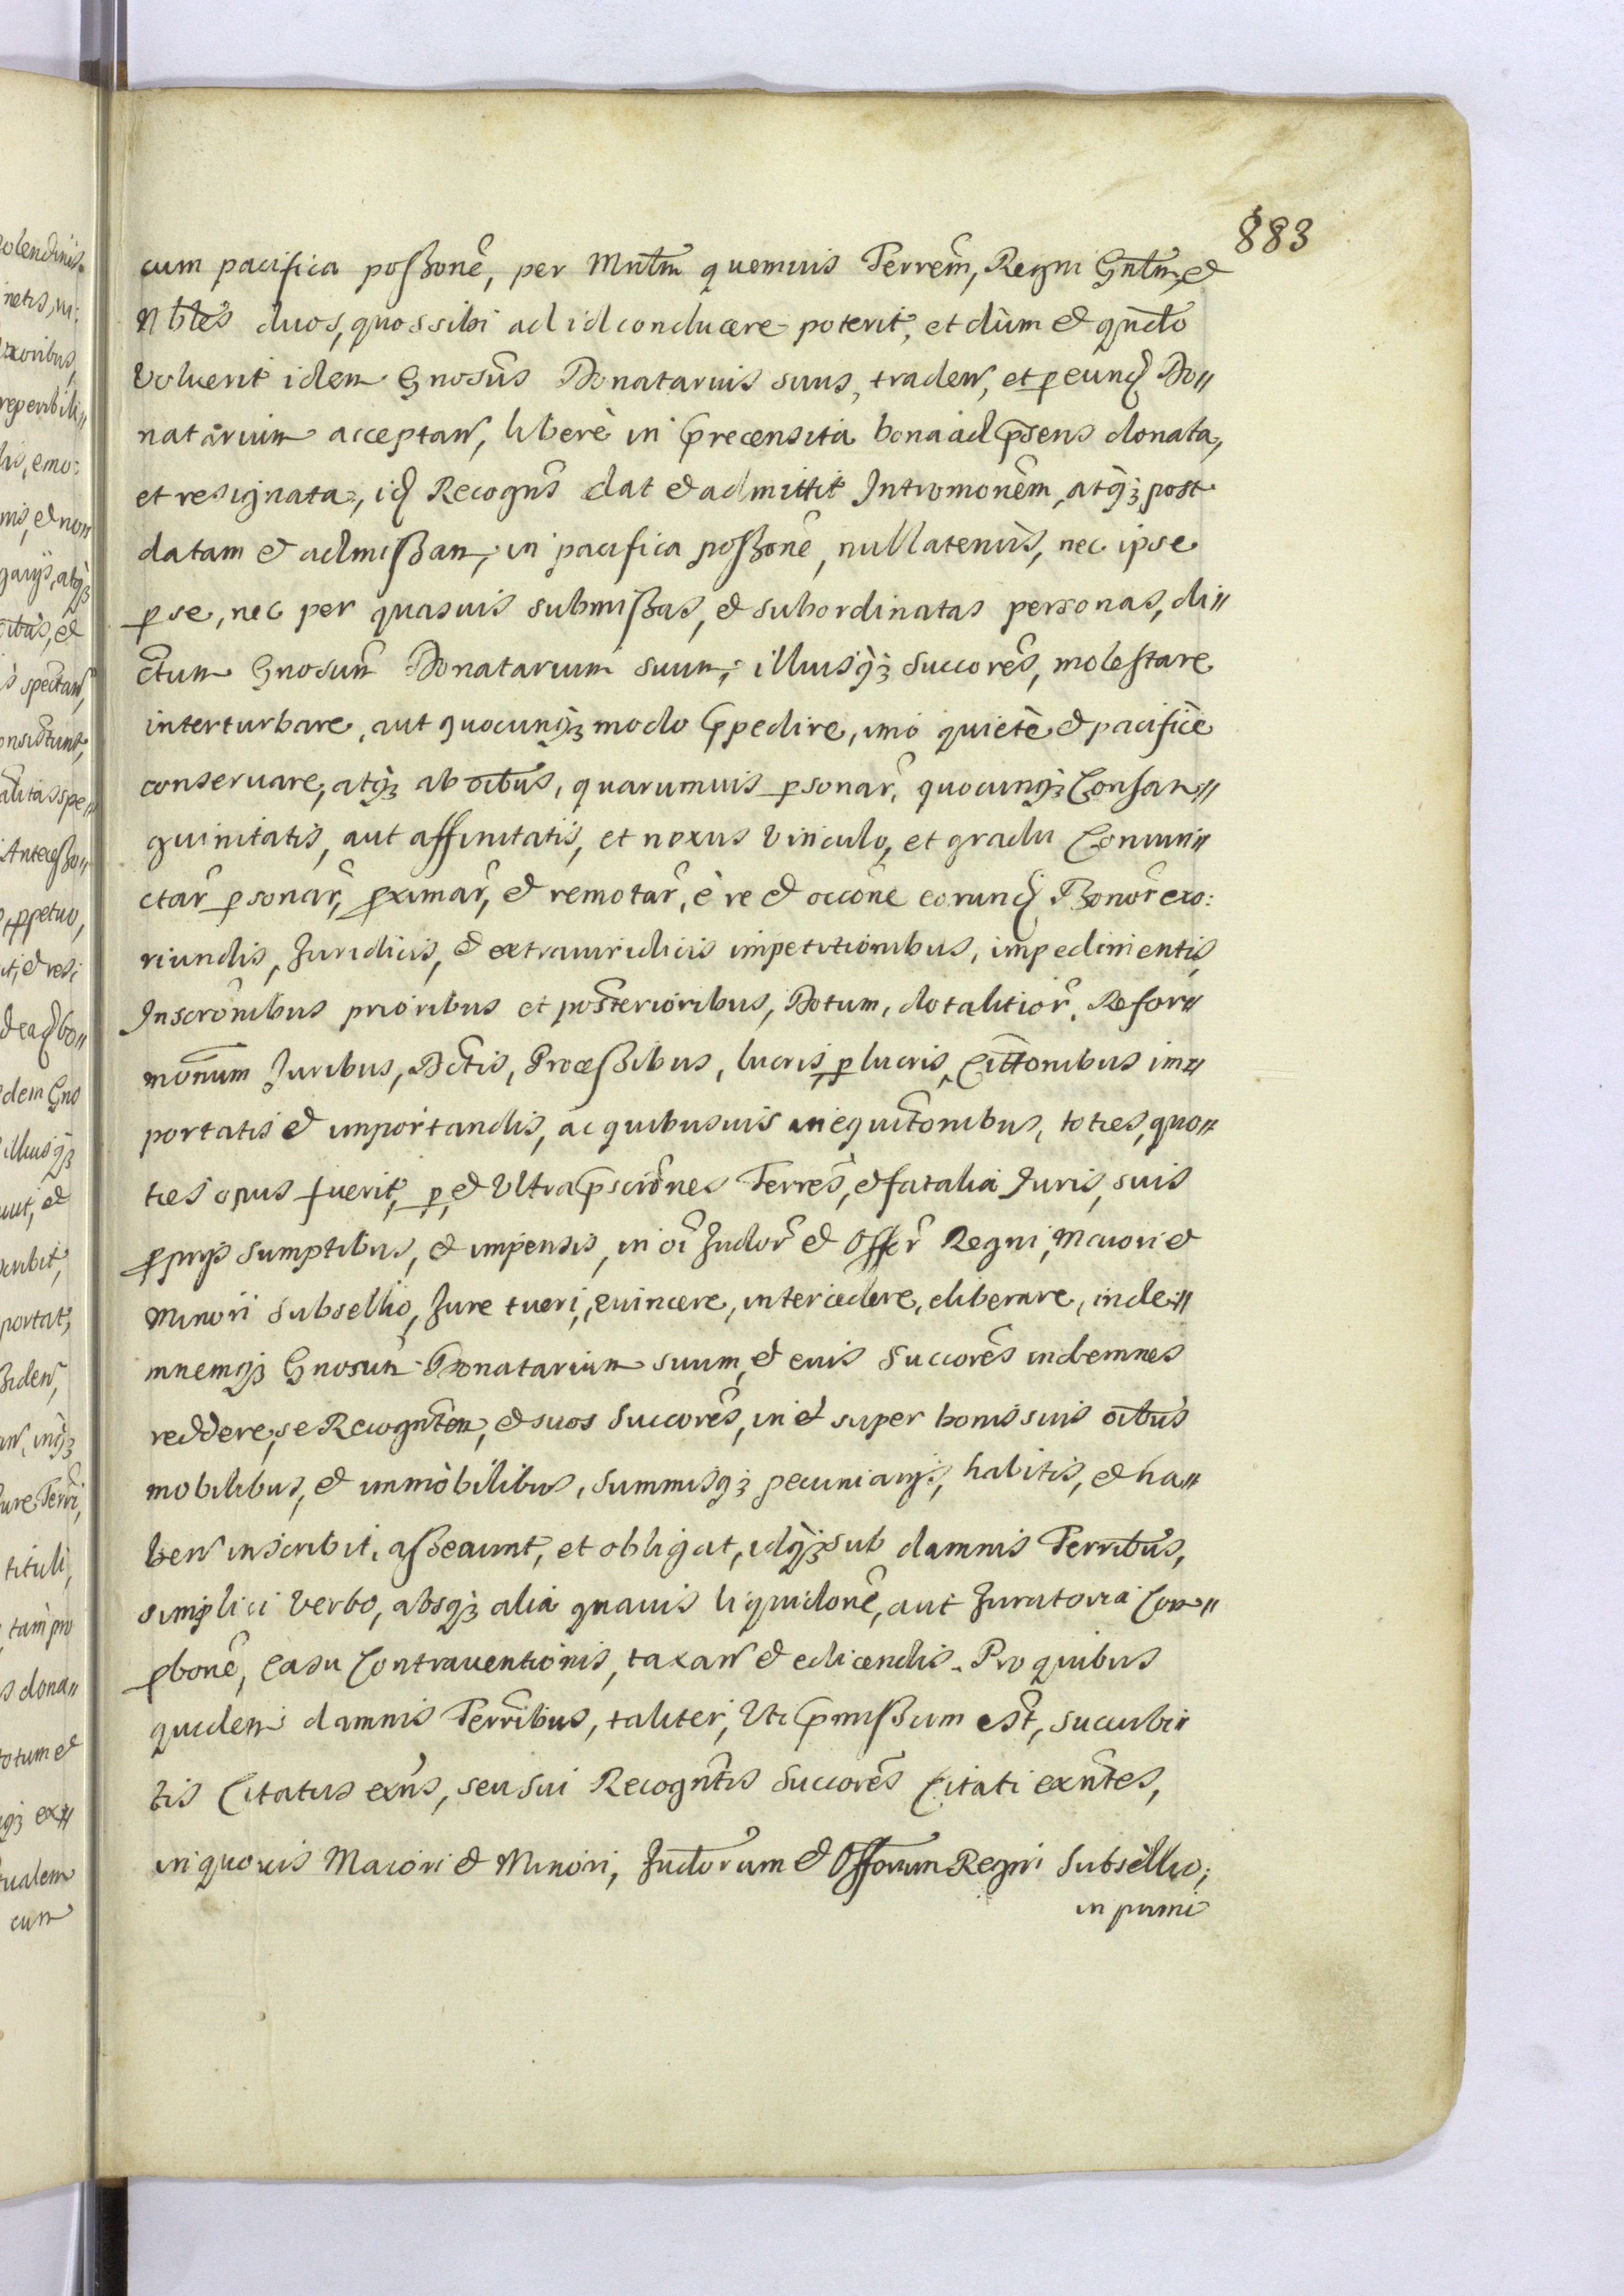 883
cum pacifica poßone, per Mntm quemuis Terrem, Regni Gntm, et
Nbles duos, quos sibi ad id conducere poterit, et dùm et qndo
Voluerit idem Gnosus Donatarius suus, traden, et p eund Do"
natarium acceptan, liberè in precensita bona ad psens donata,
et resignata, id Recogns dat et admittit Intromonem, atq3 post
datam et admißam, in pacifica poßone, nullatenùs, nec ipse
p se, nec per quasuis submißas, et subordinatas personas, di"
ctum Gnosum Donatarium suum, illiusq3 Succores, molestare
interturbare, aut quocunq3 modo ppedire, imò quietè et pacificè
conseruare, atq3 ab oibus, quarumuis psonar, quocunq3 Consan"
guinitatis, aut affinitatis, et nexus Vinculo, et gradu Coniun"
ctar psonar, pximar, et remotar, è re et occone eorund Bonor exo:
riundis, Juridicis, et extrauiridicis impetitionibus, impedimentis,
Inscronibus prioribus et posterioribus, Dotum, dotalitior, Refor"
monum Juribus, Actis, Proceßibus, lucris, plucris, Cittonibus im"
portatis et importandis, ac quibusuis inequitonibus, toties, quo"
ties opus fuerit, p, et Ultra pscrones Terres, et fatalia Juris, suis
pprijs sumptibus, et impensis, in oi Judor et Offcr Regni, Maiori et
Minori Subsellio, Jure tueri, euincere, intercedere, eliberare, inde"
mnemq3 Gnosum Donatarium suum, et eius Succores indemnes
reddere, se Recogntem, et suos Succores, in et super bonis suis oibus
mobilibus, et immòbilibus, summisq3 pecuniarijs, habitis, et ha"
ben inscribit, aßecurat, et obligat, idq3 sub damnis Terribus,
simplici Verbo, absq3 alia quauis liquidone, aut Juratoria Com"
pbone, Casu Contrauentionis, taxan et edicendis. Pro quibus
quidem damnis Terribus, taliter, Uti pmißum est, succubi"
tis Citatus exns, seu sui Recogntis Succores Citati exntes,
in quouis Maiori et Minori, Judorum et Offorum Regni Subsellio,
in primi